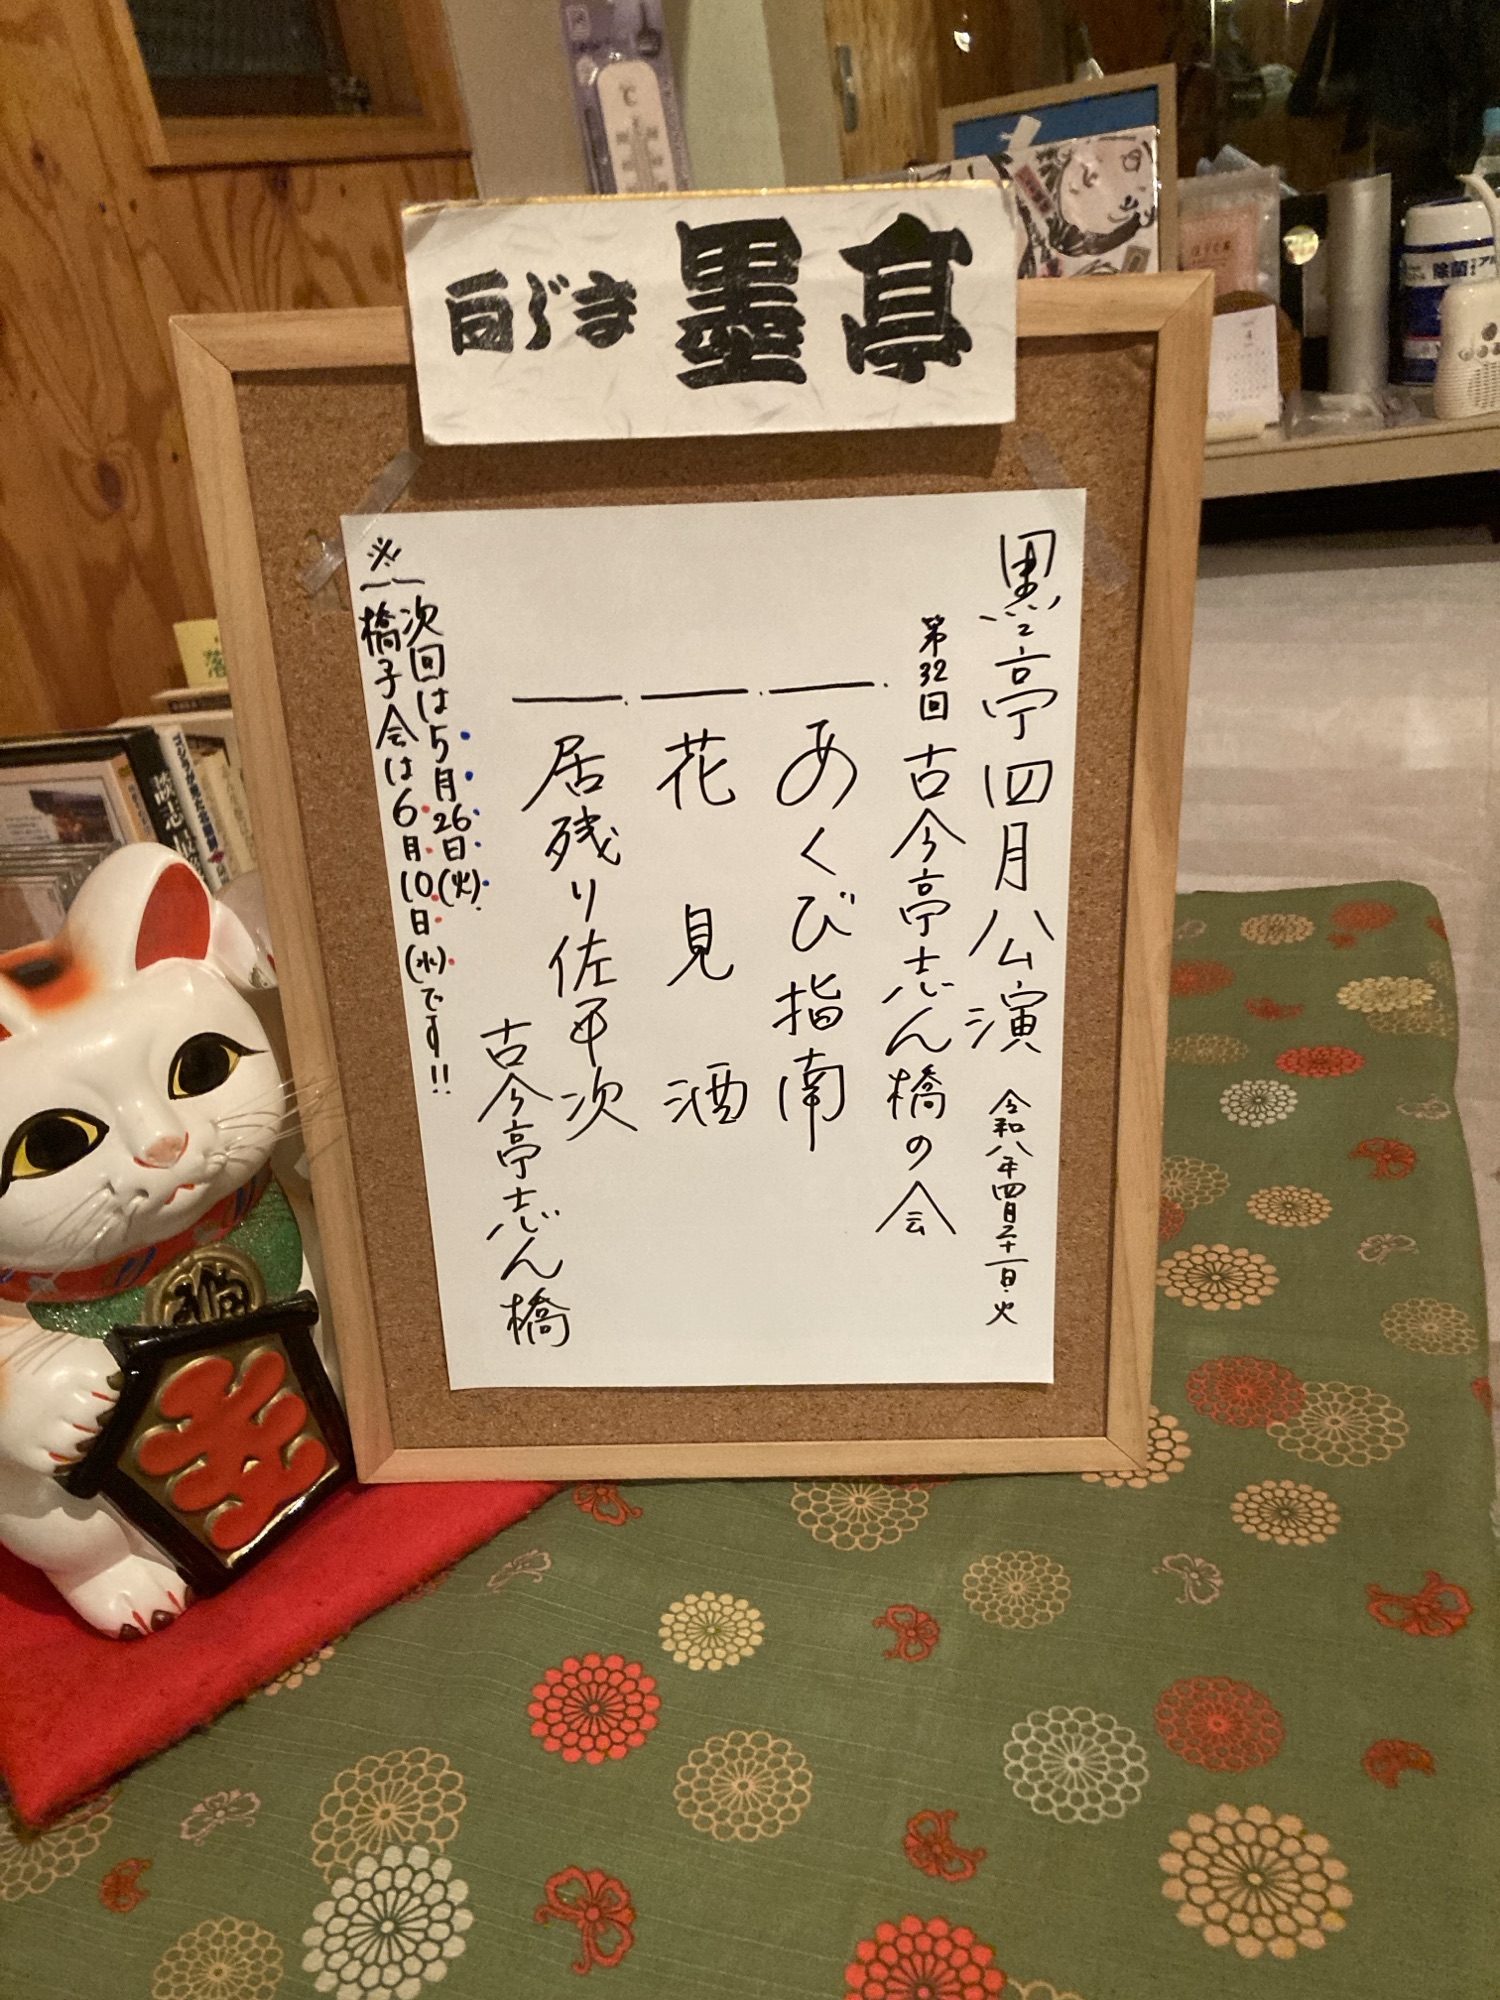 向じま墨亭
墨亭四月公演 令和八年四月二十一日・火
第32回 古今亭志ん橋の会
一、あくび指南
一、花見酒
一、居残り佐平次
古今亭志ん橋
※次回は5月26日(火)、
橋子会は6月10日(水)です!!
℃
除菌